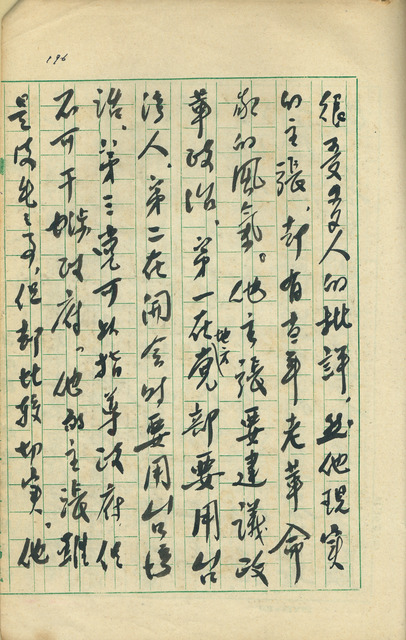 196
很受多人的批評，然他現實
的主張，却有去年老革命
家的風氣。他主張要建議政
革政治，第一在地方党部要用台
湾人，第二在開会时要用台湾
話，第三党可以指導政府但
不可干涉政府。他的主張雖
是皮毛之事，但却比較切实。他